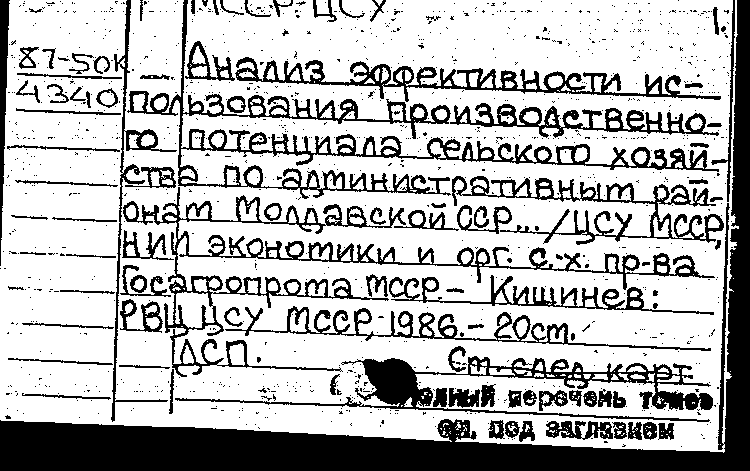 МССР. ЦСУ
1.
87-50К
4340
Анализ эффективности ис-
пользования производственно-
го потенциала сельского хозяй-
ства по административным рай-
онам Молдавской ССР... /ЦСУ МССР,
НИИ экономики и орг. с.-х. пр-ва
Госагропрома МССР. – Кишинев:
РВЦ ЦСУ МССР, 1986. – 20см.
ДСП.
См. след. карт.
Полный перечень томов
см. под заглавием